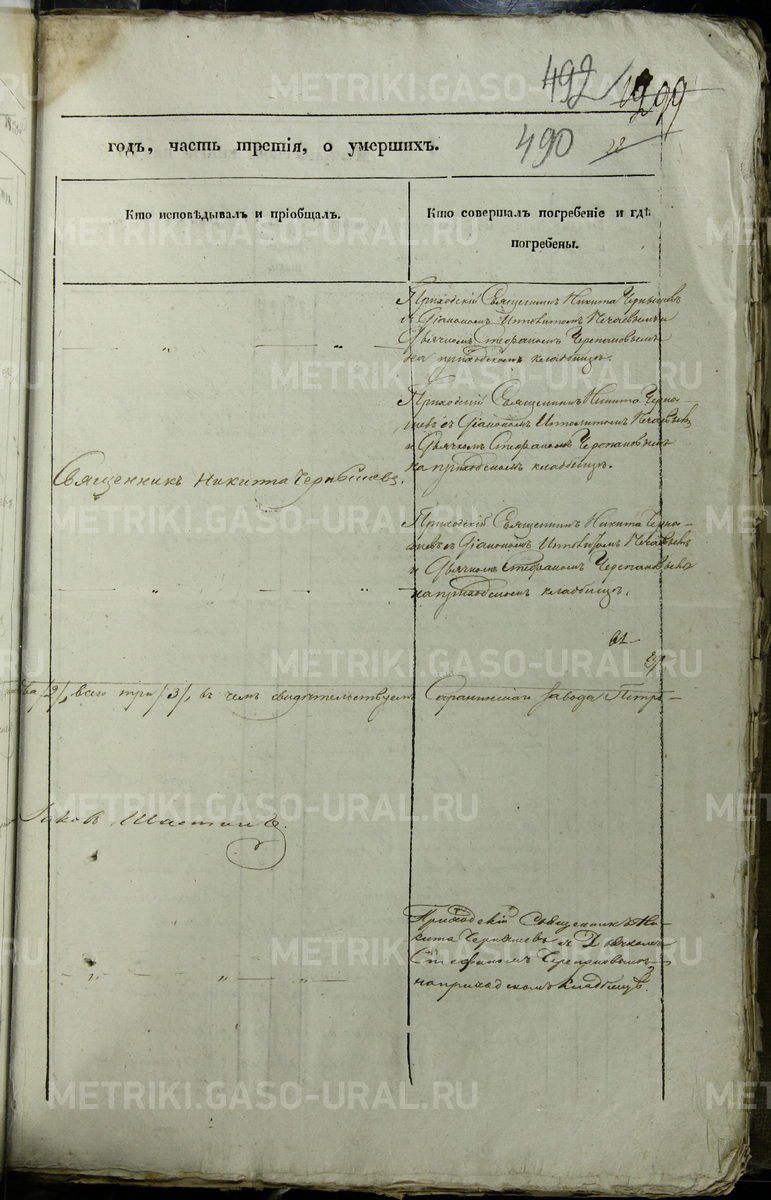 492
1299
490
28
годъ, часть третія, о умершихъ.
Кто исповѣдывалъ и пріобщалъ.
Кто совершалъ погребеніе и гдѣ
погребены.
Приходскій Священникъ Никита Чернышевъ
съ Діакономъ Ипполитомъ Нечаевымъ и
Дьячкомъ Стефаномъ Черепановымъ
на приходскомъ кладбищѣ.
Приходскій Священникъ Никита Черны-
шевъ съ Діакономъ Ипполитомъ Нечаевымъ
и Дьячкомъ Стефаномъ Черепановымъ
на приходскомъ кладбищѣ.
Священникъ Никита Чернышевъ.
Приходскій Священникъ Никита Черны-
шевъ съ Діакономъ Ипполитомъ Нечаевымъ
и Дьячкомъ Стефаномъ Черепановымъ
на приходскомъ кладбищѣ.
/2/, всего три /3/, въ чемъ свидѣтельствуемъ Саранинскаго завода Петро-
Іаковъ
Приходскій Священникъ Ни-
кита Чернышевъ съ Дьячкомъ
Стефаномъ Черепановымъ
на приходскомъ кладбищѣ.
METRIKI.GASO-URAL.RU